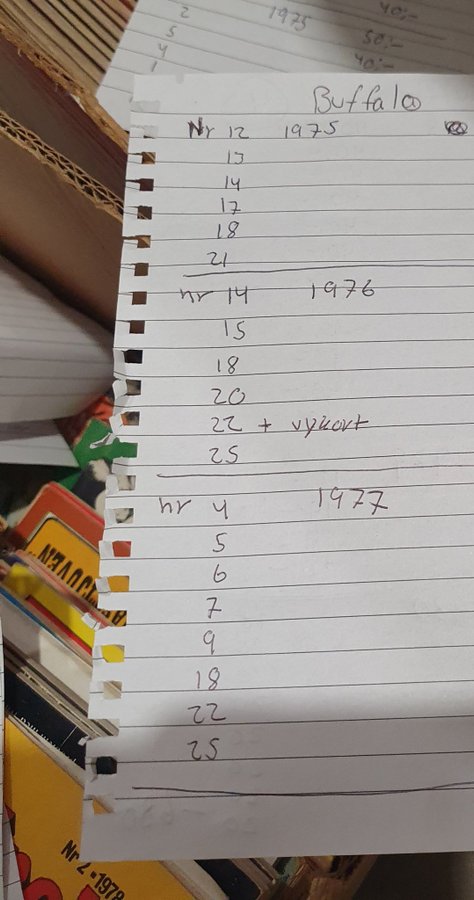 2 1975 40:-
5 50:-
4 40:-
1
Buffalo
Nr 12 1975
13
14
17
18
21
nr 14 1976
15
18
20
22 + vykort
25
nr 4 1977
5
6
7
9
18
22
25
Nr 2 - 1978